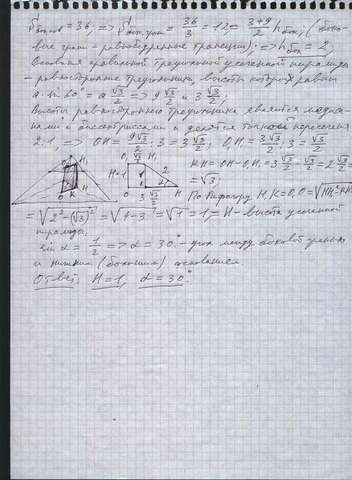 Sбок.пов = 36, => Sбок.грани = 36/3 = 12, = (3+9)/2 hбок, (боко-
вые грани - равнобедренные трапеции); => hбок = 2,
Основания правильной треугольной усеченной пирамиды
- равносторонние треугольники, высоты которых равны
a·sin 60° = a √3/2 => 9√3/2 и 3√3/2;
Высоты равностороннего треугольника являются медиа-
нами и биссектрисами и делятся точкой пересечения
2:1, => OH = 9√3/2 : 3 = 3√3/2; O₁H₁ = 3√3/2 : 3 = √3/2;
KH = OH - O₁H₁ = 3√3/2 - √3/2 = 2√3/2
= √3;
По Пифагору H₁K = O₁O = √HH₁² - KH²
= √2² - (√3)² = √4-3 = √1 = 1 = H - высота усеченной
пирамиды.
sin α = 1/2 => α = 30° - угол между боковой гранью
и нижним (большим) основанием
Ответ: H = 1, α = 30°